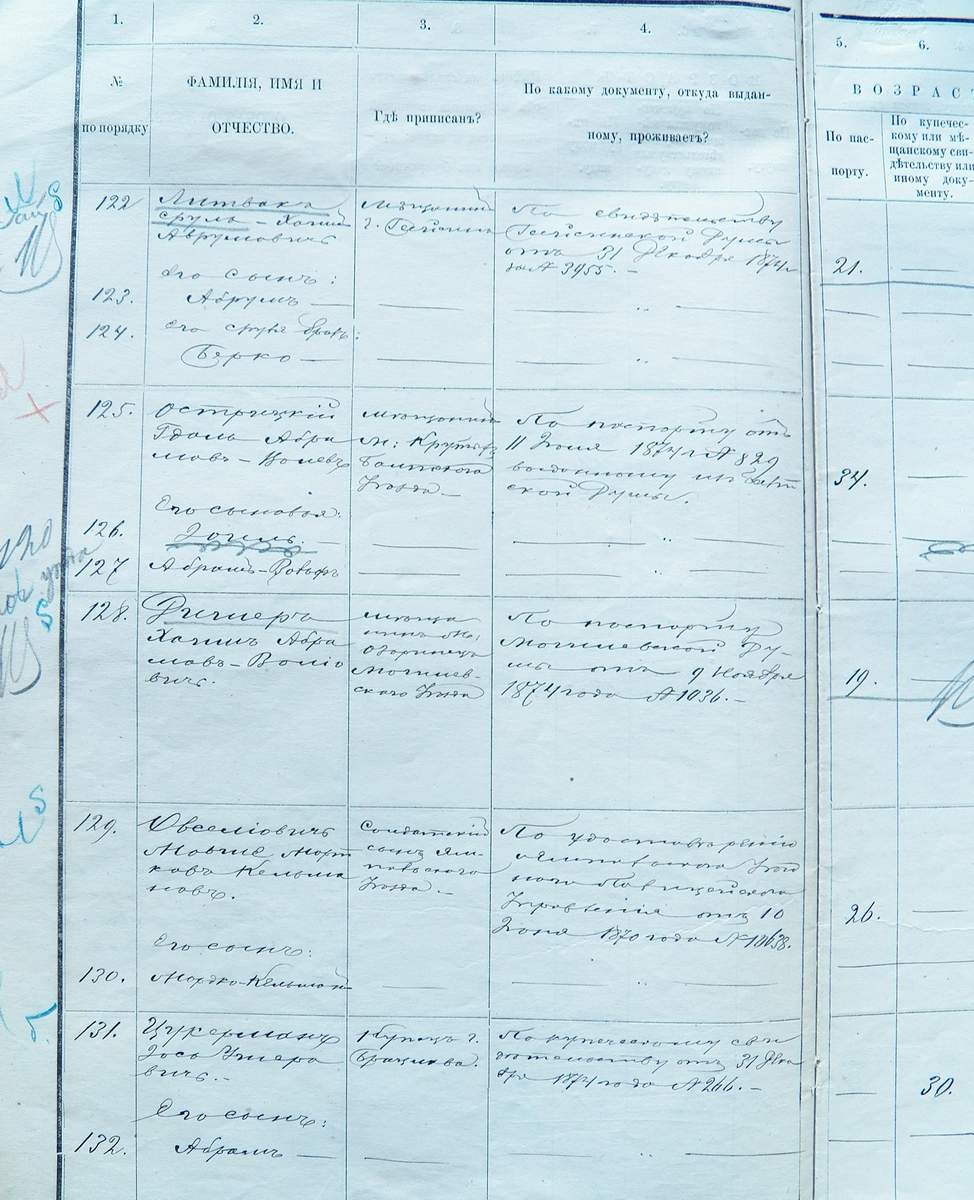 1.
2.
3.
4.
5.
6.
№
по порядку
ФАМИЛІЯ, ИМЯ И
ОТЧЕСТВО.
Гдѣ приписанъ?
По какому документу, откуда выдан-
ному, проживаетъ?
ВОЗРАСТ
По пас-
порту.
По купечес-
кому или мѣ-
щанскому сви-
дѣтельству или
иному доку-
менту.
122
Литвакъ
Сруль - Хаимъ
Аврумовичъ
Мѣщанинъ
г. Гайсинъ
По свидѣтельству
Гайсинской Думы
отъ 31 Декабря 1874 г
за № 3955. -
21.
Его сынъ:
123.
Абрумъ -
124.
Его братъ:
Берко -
125.
Острицкій
Абра
мовъ -
мѣщанинъ
м:
Балтскаго
Уѣзда -
По паспорту отъ
11 Іюня 1874 г № 829
выданному изъ Балт
ской Думы.
34.
Его сыновья:
126.
127
Абрамъ -
128.
Хаимъ Абра
мовъ -
вичъ.
мѣща
нинъ м.
Озаринецъ
Могилев-
скаго Уѣзда
По паспорту
Могилевской Ду-
мы отъ 9 Ноября
1874 года № 1036. -
19.
129.
Овселіовичъ
Мошке Морт
ковъ Кельма
новъ.
Солдатскій
сынъ Ям-
польскаго
Уѣзда. -
По удостовѣренію
Ямпольскаго Уѣзд
наго Полицейскаго
Управленія отъ 10
Іюня 1870 года №
26.
Его сынъ:
130.
Мордко-Кельманъ
131.
Цукерманъ
Іось
вичъ. -
Купецъ г.
Брацлава.
По купеческому сви
дѣтельству отъ 31 Дека
бря 1874 года № 266. -
30.
Его сынъ:
132.
Абрамъ -